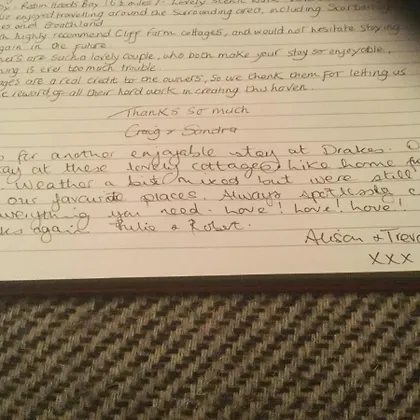 by. Robin Hoods Bay (6.2 miles). Lovely scenic walks
e enjoyed travelling around the surrounding area, including Scarborough
es and Goathland
highly recommend Cliff Farm cottages, and would not hesitate staying
gain in the future
ners are such a lovely couple, who both make your stay so enjoyable,
hing is ever too much trouble.
ages are a real credit to the owners, so we thank them for letting us
e reward of all their hard work in creating this haven.
Thanks so much
Craig & Sandra
for another enjoyable stay at Drakes. O
ay at these lovely cottages, like home f
Weather a bit mixed but were still
our favourite places. Always spotlessly c
verything you need. Love! Love! Love!
ks again Julie & Robert.
Alison & Trevo
xxx